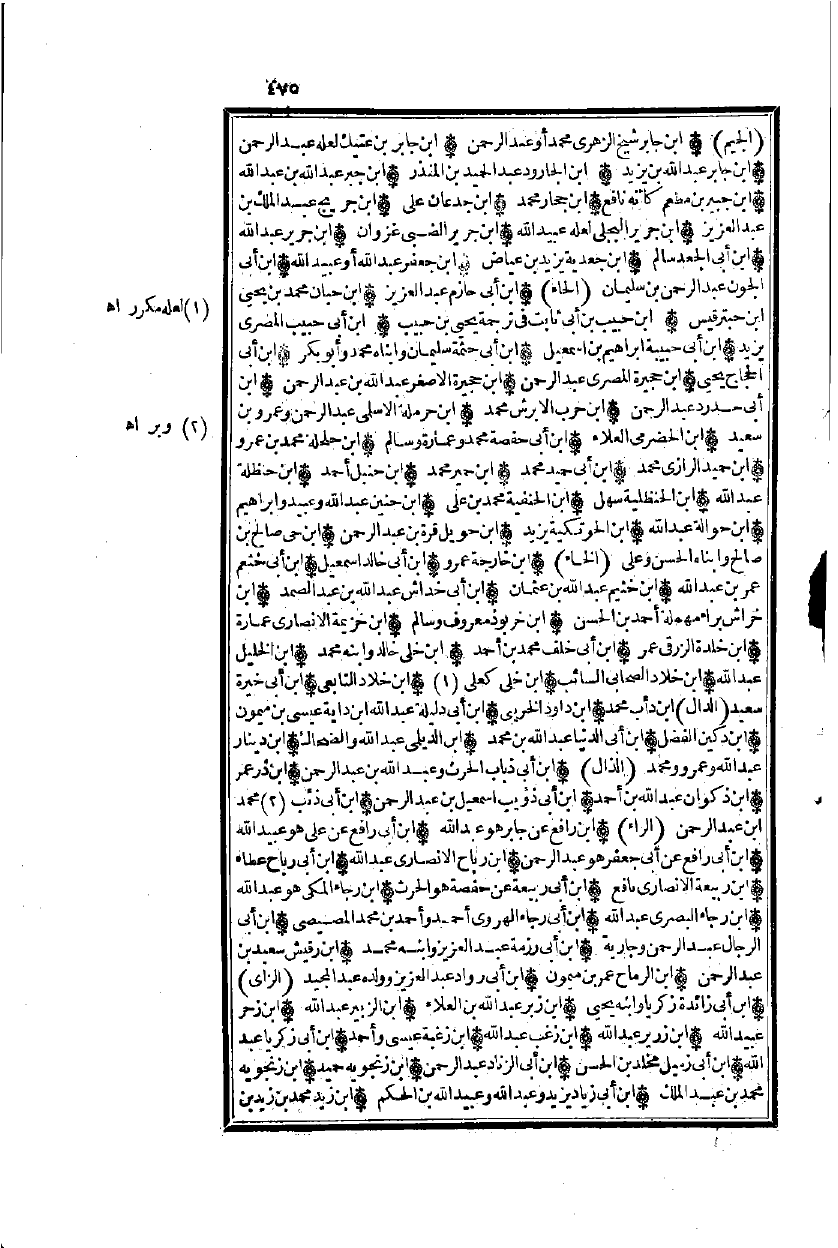 ٤٧٥
(الجيم) ۞ ابن جابر شيخ الزهرى محمد أو عبد الرحمن ۞ ابن جابر بن عتيك لعله عبد الرحمن
۞ ابن جابر عبد الله بن يزيد ۞ ابن الجارود عبد الحميد بن المنذر ۞ ابن جبر عبد الله بن عبد الله
۞ ابن جبير بن مطعم كأنه نافع ۞ ابن جحار محمد ۞ ابن جدعان على ۞ ابن جريج عبد الملك بن
عبد العزيز ۞ ابن جرير البجلى لعله عبيد الله ۞ ابن جرير الضبى غزوان ۞ ابن جرير عبد الله
۞ ابن أبى الجعد سالم ۞ ابن جعدية يزيد بن عياض ۞ ابن جعفر عبد الله أو عبيد الله ۞ ابن أبى
الجون عبد الرحمن بن سليمان (الحاء) ۞ ابن أبى حازم عبد العزيز ۞ ابن حبان محمد بن يحيى
ابن حبتر قيس ۞ ابن حبيب بن أبى ثابت فى ترجمة يحيى بن حبيب ۞ ابن أبى حبيب المصرى
يزيد ۞ ابن أبى حبيبة ابراهيم بن اسمعيل ۞ ابن أبى حثمة سليمان وابناه محمد وأبو بكر ۞ ابن أبى
الحجاج يحيى ۞ ابن حجيرة المصرى عبد الرحمن ۞ ابن حجيرة الاصغر عبد الله بن عبد الرحمن ۞ ابن
أبى حدرد عبد الرحمن ۞ ابن حرب الابرش محمد ۞ ابن حرملة الاسلمى عبد الرحمن وعمرو بن
سعيد ۞ ابن الحضرمى العلاء ۞ ابن أبى حفصة محمد وعمارة وسالم ۞ ابن حلحلة محمد بن عمرو
۞ ابن حميد الرازى محمد ۞ ابن أبى حميد محمد ۞ ابن حمير محمد ۞ ابن حنبل أحمد ۞ ابن حنظلة
عبد الله ۞ ابن الحنظلية سهل ۞ ابن الحنفية محمد بن على ۞ ابن حنين عبد الله وعبيد وابراهيم
۞ ابن حوالة عبد الله ۞ ابن الحوتكية يزيد ۞ ابن حويل قرة بن عبد الرحمن ۞ ابن حى صالح بن
صالح وابناه الحسن وعلى (الخاء) ۞ ابن خارجة عمرو ۞ ابن أبى خالد اسمعيل ۞ ابن أبى خثعم
عمر بن عبد الله ۞ ابن خثيم عبد الله بن عثمان ۞ ابن أبى خداش عبد الله بن عبد الصمد ۞ ابن
خراش براء مهملة أحمد بن الحسن ۞ ابن خربوذ معروف وسالم ۞ ابن خزيمة الانصارى عمارة
۞ ابن خلدة الزرقى عمر ۞ ابن أبى خلف محمد بن أحمد ۞ ابن خلى خالد وابنه محمد ۞ ابن الخليل
عبد الله ۞ ابن خلاد الصحابى السائب ۞ ابن خلى كعلى (١) ۞ ابن خلاد التابعى ۞ ابن أبى خيرة
سعيد (الدال) ابن دأب محمد ۞ ابن داود الخريبى ۞ ابن أبى دليلة عبد الله ابن داية عيسى بن ميمون
۞ ابن دكين الفضل ۞ ابن أبى الدنيا عبد الله بن محمد ۞ ابن الديلمى عبد الله والضحاك ۞ ابن دينار
عبد الله وعمرو ومحمد (الذال) ۞ ابن أبى ذباب الحرث وعبد الله بن عبد الرحمن ۞ ابن ذر عمر
۞ ابن ذكوان عبد الله بن أحمد ۞ ابن أبى ذؤيب اسمعيل بن عبد الرحمن ۞ ابن أبى ذئب (٢) محمد
ابن عبد الرحمن (الراء) ۞ ابن رافع عن جابر هو عبد الله ۞ ابن أبى رافع عن على هو عبيد الله
۞ ابن أبى رافع عن أبى جعفر هو عبد الرحمن ۞ ابن رباح الانصارى عبد الله ۞ ابن أبى رباح عطاء
۞ ابن ربيعة الانصارى نافع ۞ ابن أبى ربيعة عن حفصة هو الحرث ۞ ابن رجاء المكى هو عبد الله
۞ ابن رجاء البصرى عبد الله ۞ ابن أبى رجاء الهروى أحمد وأحمد بن محمد المصيصى ۞ ابن أبى
الرجال عبد الرحمن وجارية ۞ ابن أبى رزمة عبد العزيز وابنه محمد ۞ ابن رقيش سعيد بن
عبد الرحمن ۞ ابن الرماح عمر بن ميمون ۞ ابن أبى رواد عبد العزيز وولده عبد المجيد (الزاى)
۞ ابن أبى زائدة زكريا وابنه يحيى ۞ ابن زبر عبد الله بن العلاء ۞ ابن الزبير عبد الله ۞ ابن زحر
عبيد الله ۞ ابن زرير عبد الله ۞ ابن زغب عبد الله ۞ ابن زغبة عيسى وأحمد ۞ ابن أبى زكريا عبد
الله ۞ ابن أبى زميل مخلد بن الحسن ۞ ابن أبى الزناد عبد الرحمن ۞ ابن زنجويه حميد ۞ ابن زنجويه
محمد بن عبد الملك ۞ ابن أبى زياد يزيد وعبد الله وعبيد الله بن الحكم ۞ ابن زيد محمد بن زيد بن
(١) لعله مكرر اه
(٢) وبر اه